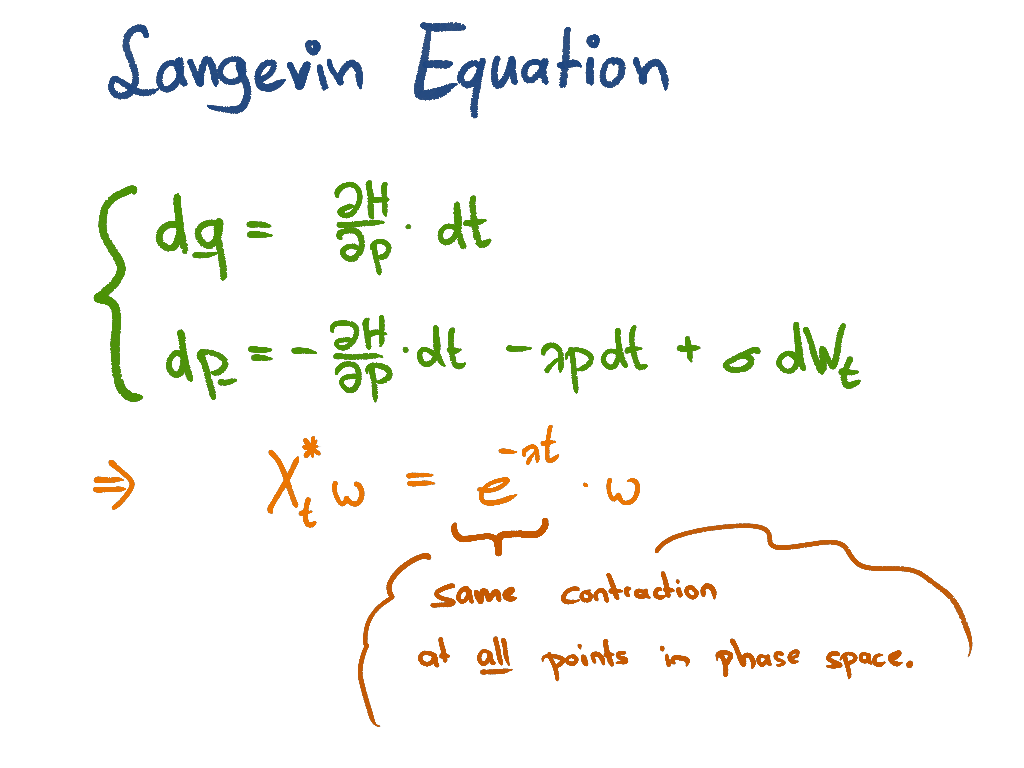 Langevin Equation
dq = ∂H/∂p · dt
dp = - ∂H/∂p · dt - λp dt + σ dW_t
⇒ X_t^* ω = e^{-λt} · ω
same contraction
at all points in phase space.